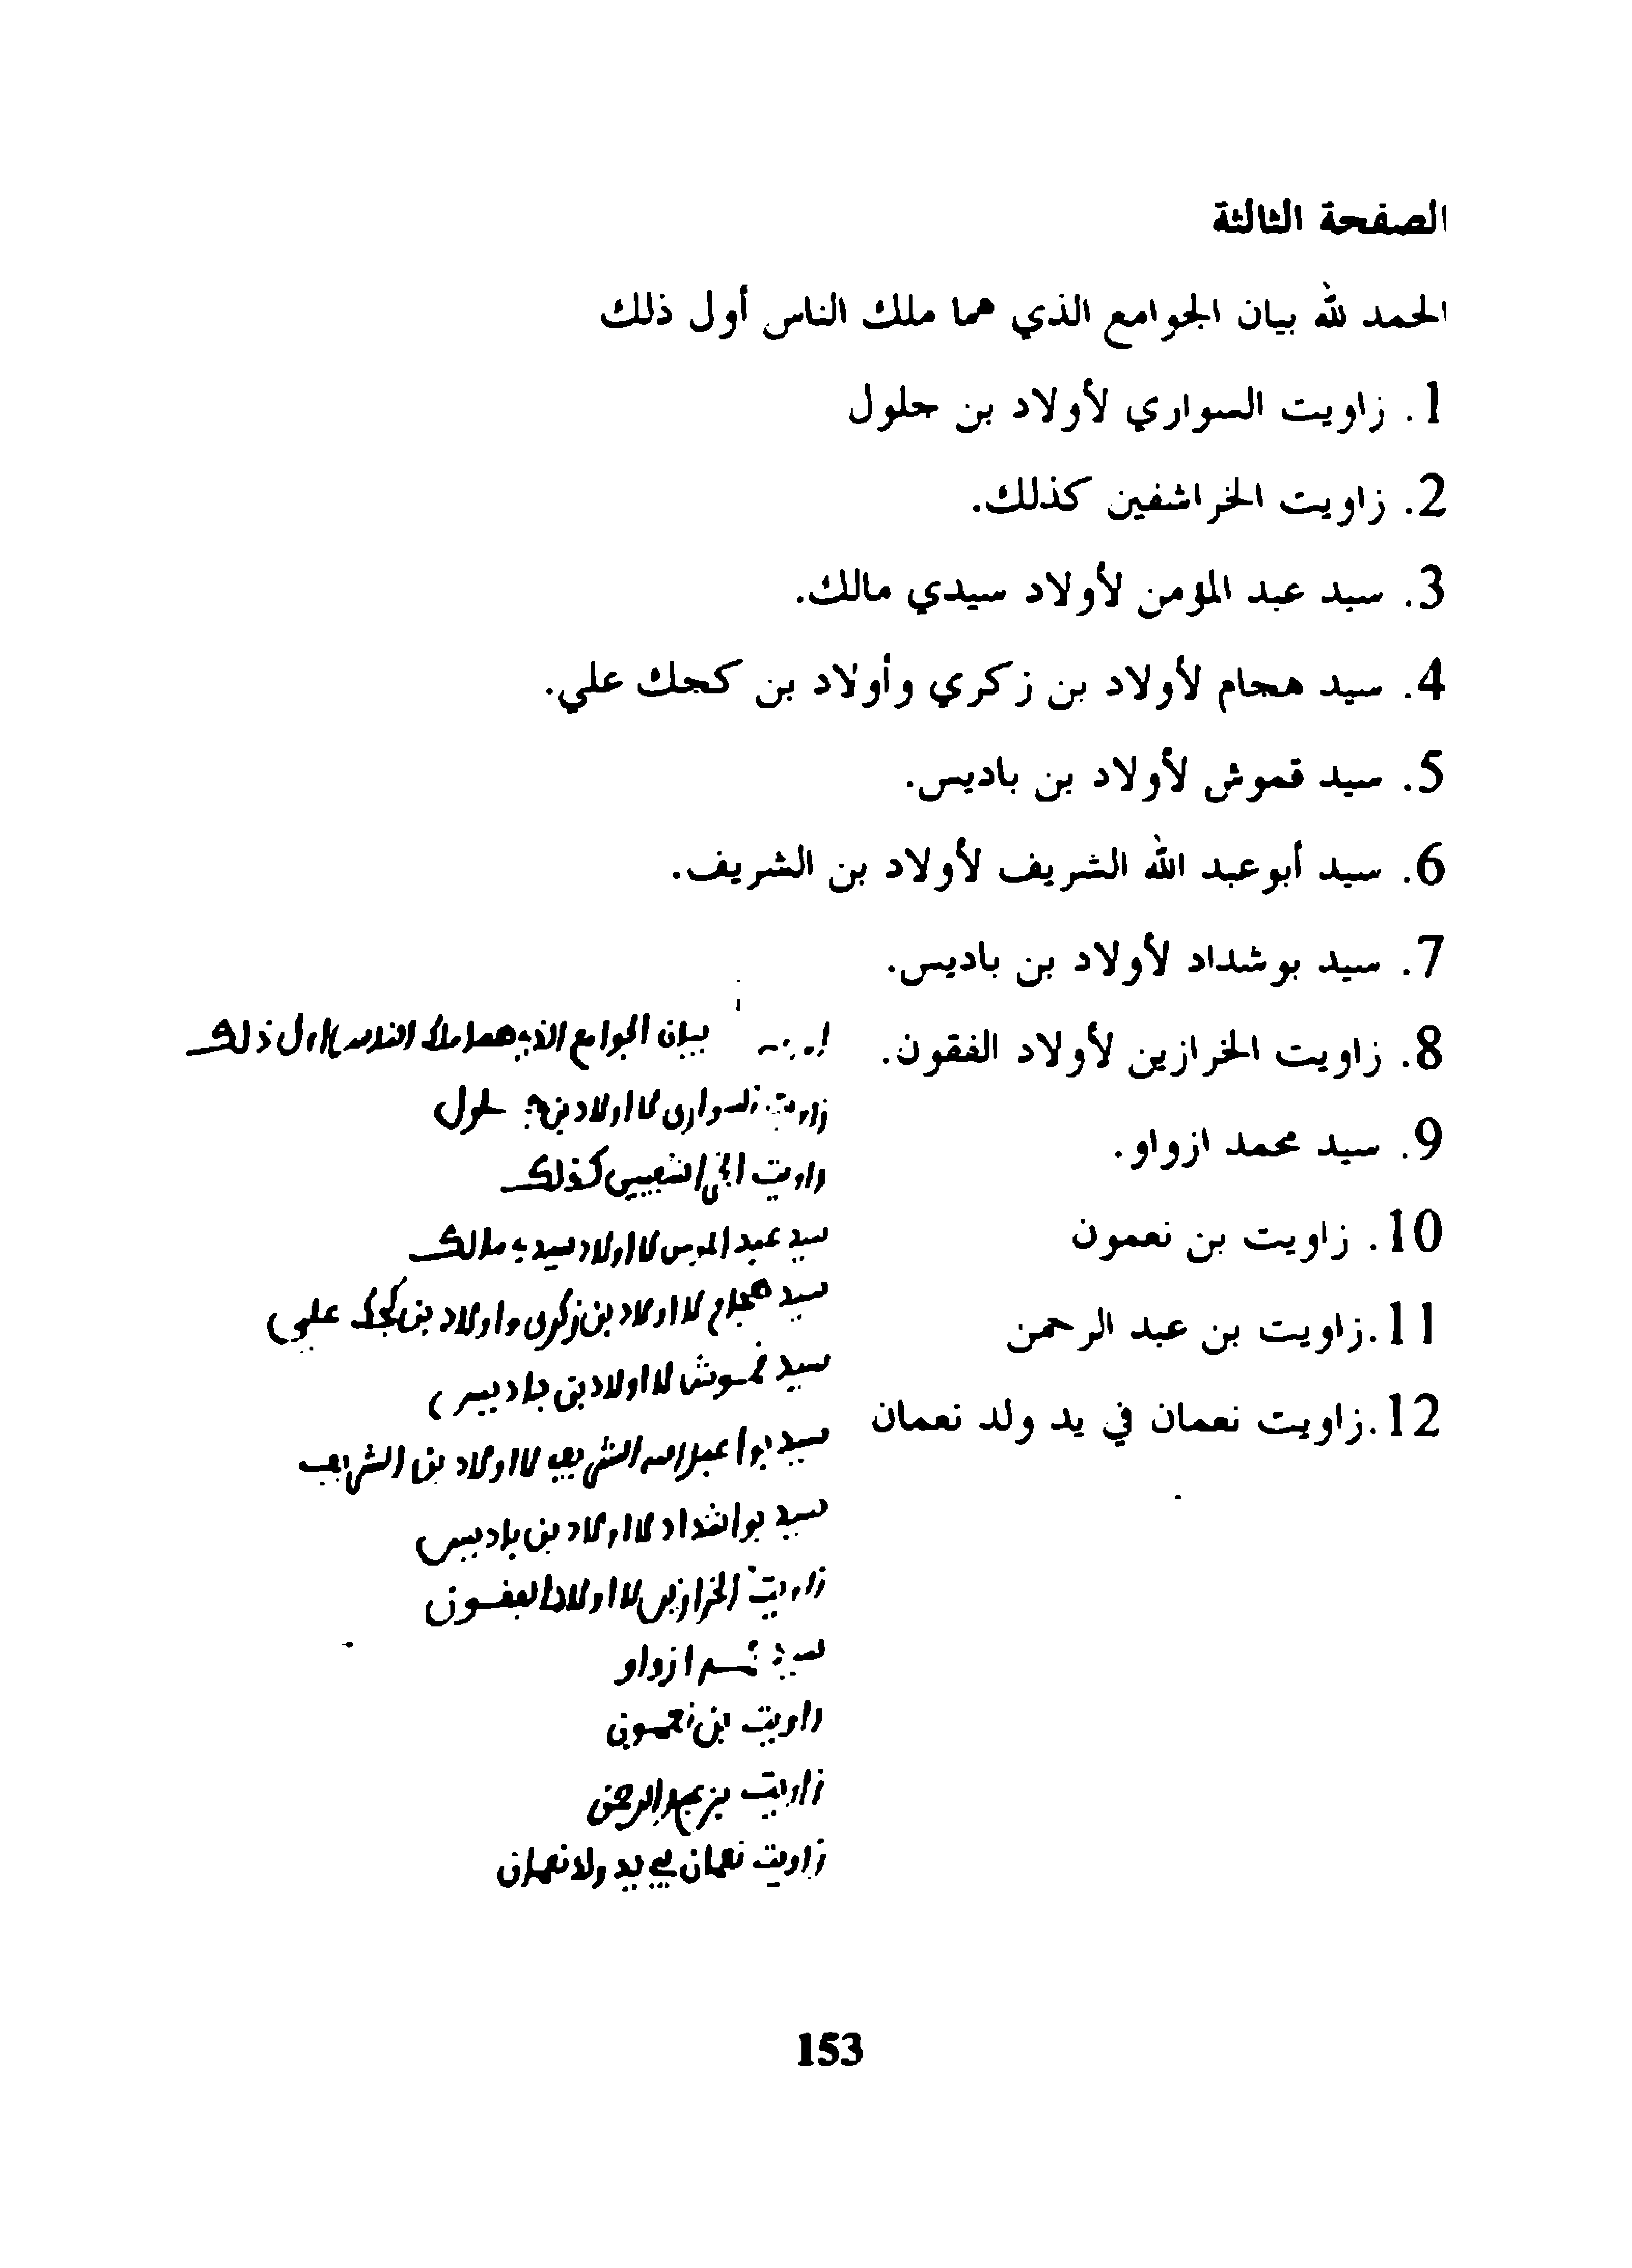 الصفحة الثالثة
الحمد لله بيان الجوامع الذي هما ملك الناس أول ذلك
1. زاويت السواري لأولاد بن حلول
2. زاويت الخراشفين كذلك.
3. سيد عبد المؤمن لأولاد سيدي مالك.
4. سيد هجام لأولاد بن زكري وأولاد بن كجك علي.
5. سيد قموش لأولاد بن باديس.
6. سيد أبو عبد الله الشريف لأولاد بن الشريف.
7. سيد بوشداد لأولاد بن باديس.
8. زاويت الخرازين لأولاد الفقون.
9. سيد محمد ازواو.
10. زاويت بن نعمون
11. زاويت بن عبد الرحمن
12. زاويت نعمان في يد ولد نعمان
بيان الجوامع الذي هما ملك الناس اول ذلك
زاويت السواري لااولاد بن حلول
زاويت الخراشفيين كذلك
سيد عبد المومن لااولاد سيدي مالك
سيد هجام لااولاد بن زكري واولاد بن كجك علي
سيد قموش لااولاد بن باديس
سيد بوا عبد الله الشريف لااولاد بن الشريف
سيد بواشداد لااولاد بن باديس
زاويت الخرازين لااولاد الفقون
سيد محمد ازواو
زاويت بن نعمون
زاويت بن عبد الرحمن
زاويت نعمان في يد ولد نعمان
153